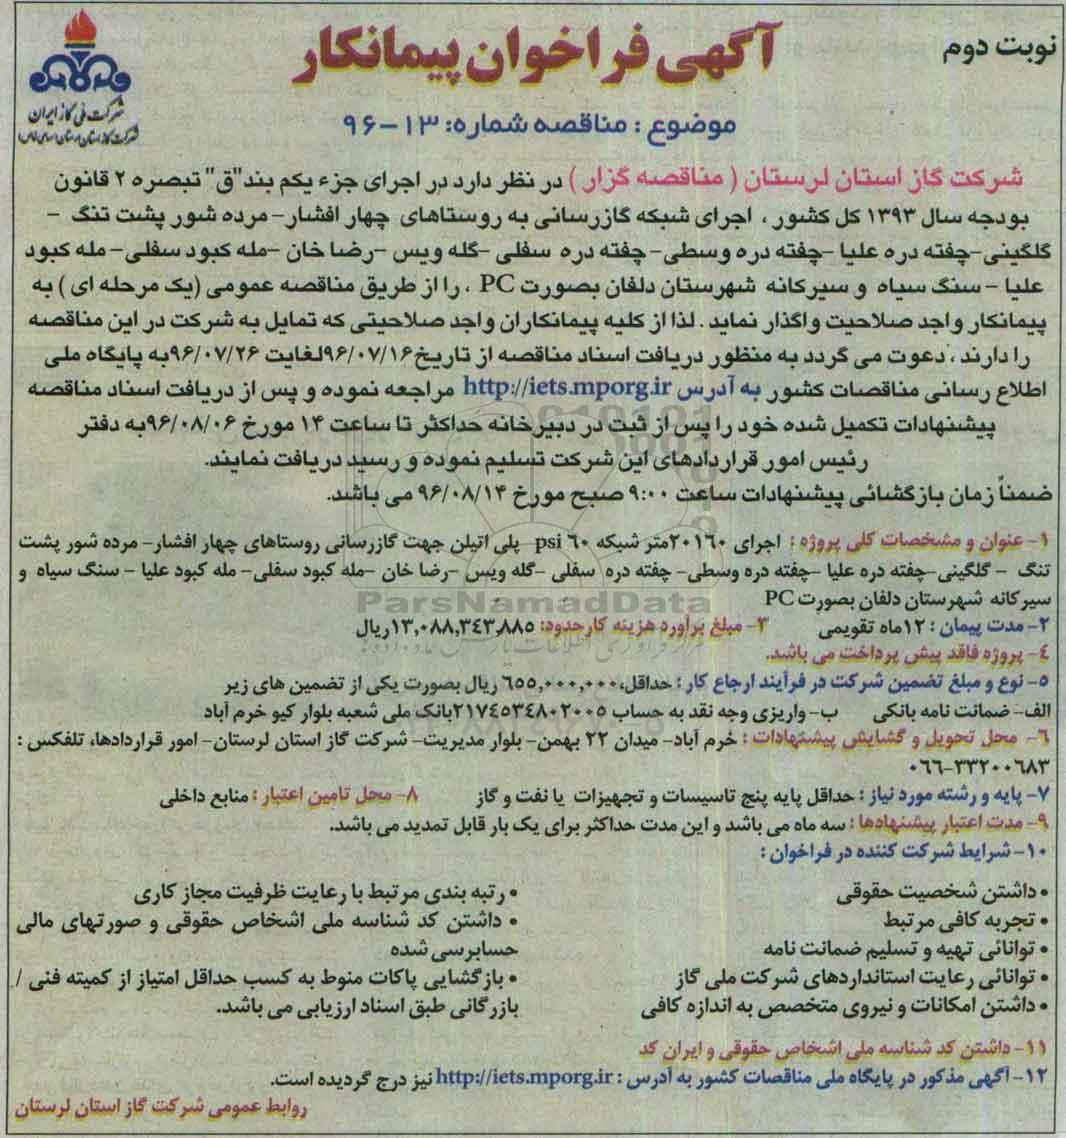 نوبت دوم
آگهی فراخوان پیمانکار
شرکت ملی گاز ایران
موضوع : مناقصه شماره: ۱۳-۹۶
شرکت گاز استان لرستان ( مناقصه گزار ) در نظر دارد در اجرای جزء یکم بند"ق" تبصره ۲ قانون
بودجه سال ۱۳۹۳ کل کشور ، اجرای شبکه گازرسانی به روستاهای چهار افشار- مرده شور پشت تنگ -
گلگینی-چفته دره علیا -چفته دره وسطی- چفته دره سفلی -گله ویس -رضا خان -مله کبود سفلی- مله کبود
علیا - سنگ سیاه و سیرکانه شهرستان دلفان بصورت PC ، را از طریق مناقصه عمومی (یک مرحله ای ) به
پیمانکار واجد صلاحیت واگذار نماید . لذا از کلیه پیمانکاران واجد صلاحیتی که تمایل به شرکت در این مناقصه
را دارند ، دعوت می گردد به منظور دریافت اسناد مناقصه از تاریخ ۹۶/۰۷/۱۶لغایت ۹۶/۰۷/۲۶به پایگاه ملی
اطلاع رسانی مناقصات کشور به آدرس http://iets.mporg.ir مراجعه نموده و پس از دریافت اسناد مناقصه
پیشنهادات تکمیل شده خود را پس از ثبت در دبیرخانه حداکثر تا ساعت ۱۴ مورخ ۹۶/۰۸/۰۶به دفتر
رئیس امور قراردادهای این شرکت تسلیم نموده و رسید دریافت نمایند.
ضمناً زمان بازگشائی پیشنهادات ساعت ۹:۰۰ صبح مورخ ۹۶/۰۸/۱۴ می باشد.
۱- عنوان و مشخصات کلی پروژه : اجرای ۲۰۱۶۰متر شبکه ۶۰ psi پلی اتیلن جهت گازرسانی روستاهای چهار افشار- مرده شور پشت
تنگ - گلگینی-چفته دره علیا -چفته دره وسطی- چفته دره سفلی -گله ویس -رضا خان -مله کبود سفلی- مله کبود علیا - سنگ سیاه و
سیرکانه شهرستان دلفان بصورت PC
ParsNamadData
۲- مدت پیمان : ۱۲ماه تقویمی ۳- مبلغ برآورد هزینه کارحدود: ۱۳,۰۸۸,۳۴۳,۸۸۵ریال
۴- پروژه فاقد پیش پرداخت می باشد.
۵- نوع و مبلغ تضمین شرکت در فرآیند ارجاع کار : حداقل، ۶۵۵,۰۰۰,۰۰۰ ریال بصورت یکی از تضمین های زیر
الف- ضمانت نامه بانکی ب- واریزی وجه نقد به حساب ۲۱۷۴۵۳۴۸۰۲۰۰۵بانک ملی شعبه بلوار کیو خرم آباد
۶- محل تحویل و گشایش پیشنهادات : خرم آباد- میدان ۲۲ بهمن- بلوار مدیریت- شرکت گاز استان لرستان- امور قراردادها، تلفکس :
۰۶۶-۳۳۲۰۰۶۸۳
۷- پایه و رشته مورد نیاز : حداقل پایه پنج تاسیسات و تجهیزات یا نفت و گاز ۸- محل تامین اعتبار : منابع داخلی
۹- مدت اعتبار پیشنهادها : سه ماه می باشد و این مدت حداکثر برای یک بار قابل تمدید می باشد.
۱۰- شرایط شرکت کننده در فراخوان :
• داشتن شخصیت حقوقی
• تجربه کافی مرتبط
• توانائی تهیه و تسلیم ضمانت نامه
• توانائی رعایت استانداردهای شرکت ملی گاز
• داشتن امکانات و نیروی متخصص به اندازه کافی
• رتبه بندی مرتبط با رعایت ظرفیت مجاز کاری
• داشتن کد شناسه ملی اشخاص حقوقی و صورتهای مالی
حسابرسی شده
• بازگشایی پاکات منوط به کسب حداقل امتیاز از کمیته فنی /
بازرگانی طبق اسناد ارزیابی می باشد.
۱۱- داشتن کد شناسه ملی اشخاص حقوقی و ایران کد
۱۲- آگهی مذکور در پایگاه ملی مناقصات کشور به آدرس : http://iets.mporg.ir نیز درج گردیده است.
روابط عمومی شرکت گاز استان لرستان